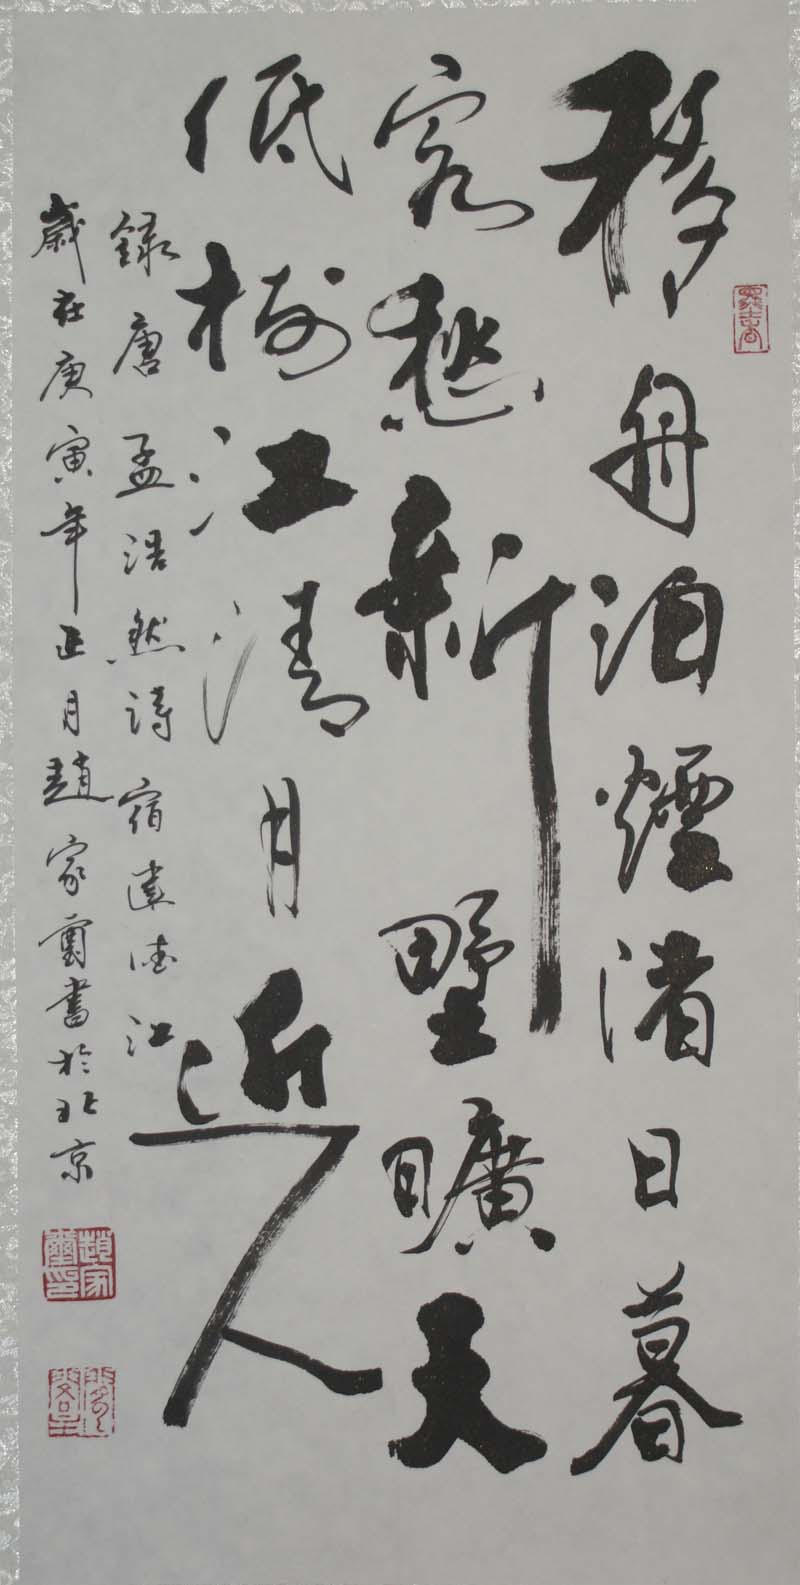 移舟泊煙渚日暮
客愁新野曠天
低樹江清月近人
錄唐孟浩然詩宿建德江
歲在庚寅年正月趙家璽書於北京
趙家璽印